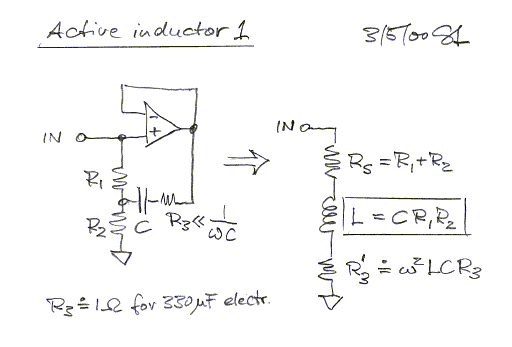 Active inductor 1
3/5/00 SL
IN
IN
− +
R₁
R₂
C
R₃ ≪ 1/ωC
⇒
Rₛ = R₁ + R₂
L = C R₁ R₂
R₃' ≐ ω² L C R₃
R₃ ≐ 1Ω for 330 µF electr.